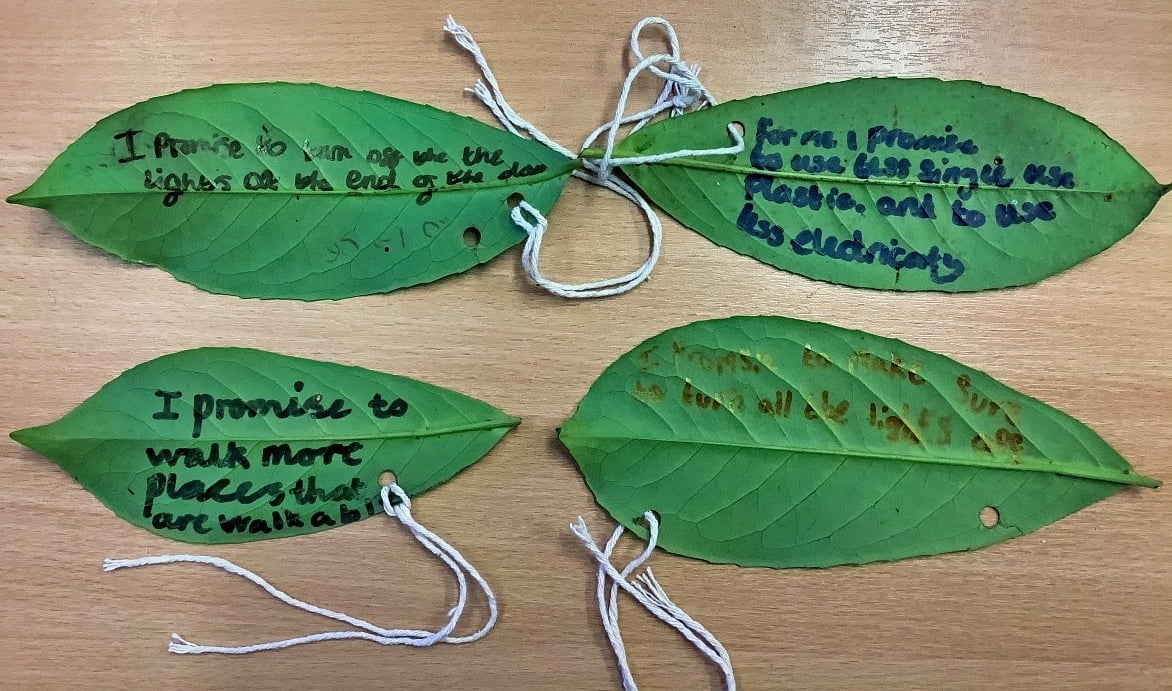 I promise to turn off the the
lights at the end of the day
for me I promise
to use less single use
plastic, and to use
less electricaty
I promise to
walk more
places that
are walkabl
I Promise to make sure
to turn all the lights off